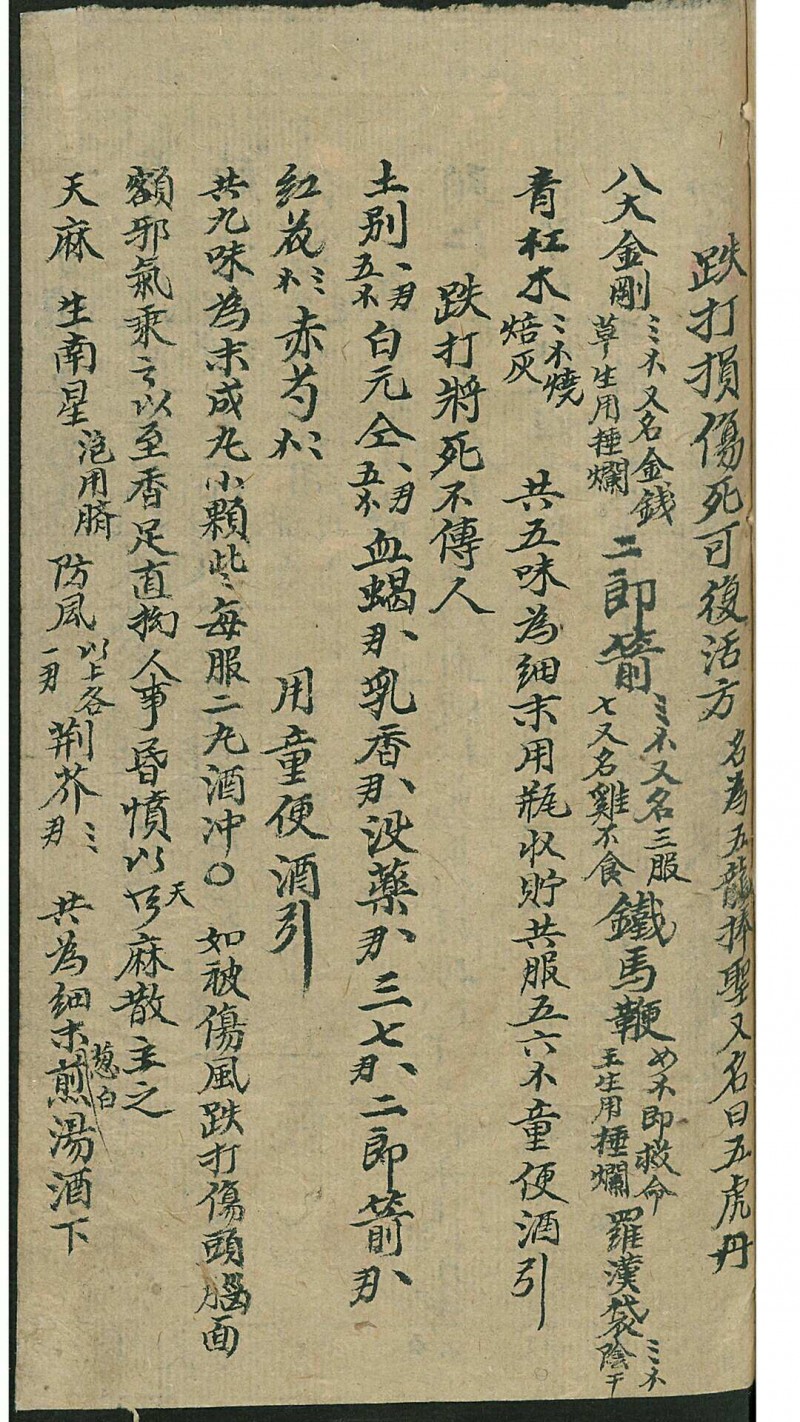 跌打損傷死可復活方 名為五龍捧聖又名曰五虎丹
八大金剛 三不又名金錢草生用捶爛 二郎箭 三不又名三服七又名雞不食 鐵馬鞭 不即救命王生用捶爛 羅漢袋 三不陰干
青杠木 三不燒焙灰 共五味為細末用瓶收貯共服五六不童便酒引
跌打將死不傳人
土別 五不 白元 五不 血蝎 乳香 没藥 三七 二郎箭
紅花 赤芍 用童便酒引
共九味為末成丸小顆些每服二丸酒冲〇 如被傷風跌打傷頭腦面
額邪氣乘之以至香足直拘人事昏憒以天麻散主之
天麻 生南星 泡用臍 防風 一 以上各 荆芥 共為細末葱白煎湯酒下